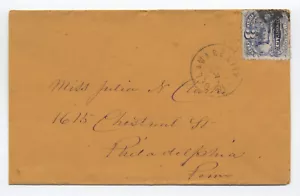 Miss Julia N Clarke
1615 Chestnut St
Philadelphia
Penn